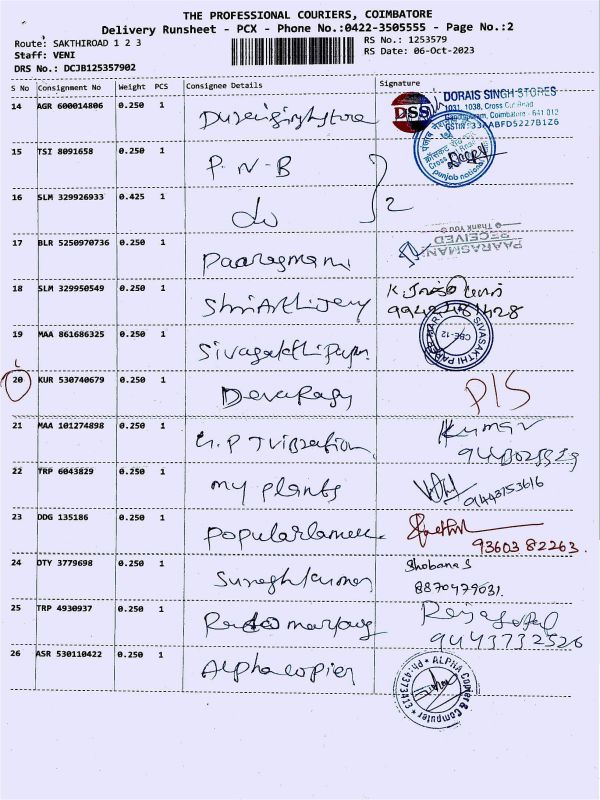 THE PROFESSIONAL COURIERS, COIMBATORE
Delivery Runsheet - PCX - Phone No.:0422-3505555 - Page No.:2
Route: SAKTHIROAD 1 2 3
RS No.: 1253579
Staff: VENI
RS Date: 06-Oct-2023
DRS No.: DCJB125357902
S No Consignment No Weight PCS Consignee Details Signature
14 AGR 600014806 0.250 1
DSS DORAIS SINGH STORES
1031, 1038, Cross Cut Road
Coimbatore - 641 012
15 TSI 8091658 0.250 1 P.N.B
punjab national
16 SLM 329926933 0.425 1 do 2
17 BLR 5250970736 0.250 1 Paarasmani
Thank You
RECEIVED
PAARASMANI
18 SLM 329950549 0.250 1
K.
19 MAA 861686325 0.250 1 Sivasakthi Paper
SIVASAKTHI PAPER MART
CBE-12
20 KUR 530740679 0.250 1 Devaragy P/S
21 MAA 101274898 0.250 1 Kumar
22 TRP 6043829 0.250 1 my plants
9443153616
23 DDG 135186 0.250 1
93603 82263.
24 DTY 3779698 0.250 1 Shobana S
8870479031.
25 TRP 4930937 0.250 1
9443732526
26 ASR 530110422 0.250 1 Alpha copier
ALPHA Copier & Computer